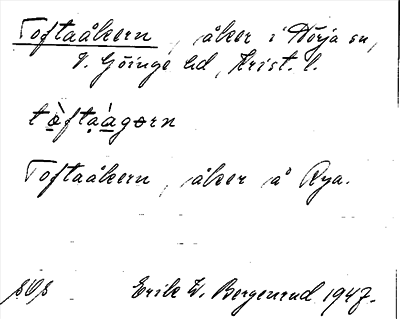 Toftaåkern, åker i Nörja sn,
V. Göinge hd, Krist. l.
tòftaágorn
Toftaåkern, åker å Rya.
Erik W. Bergenrud 1947.